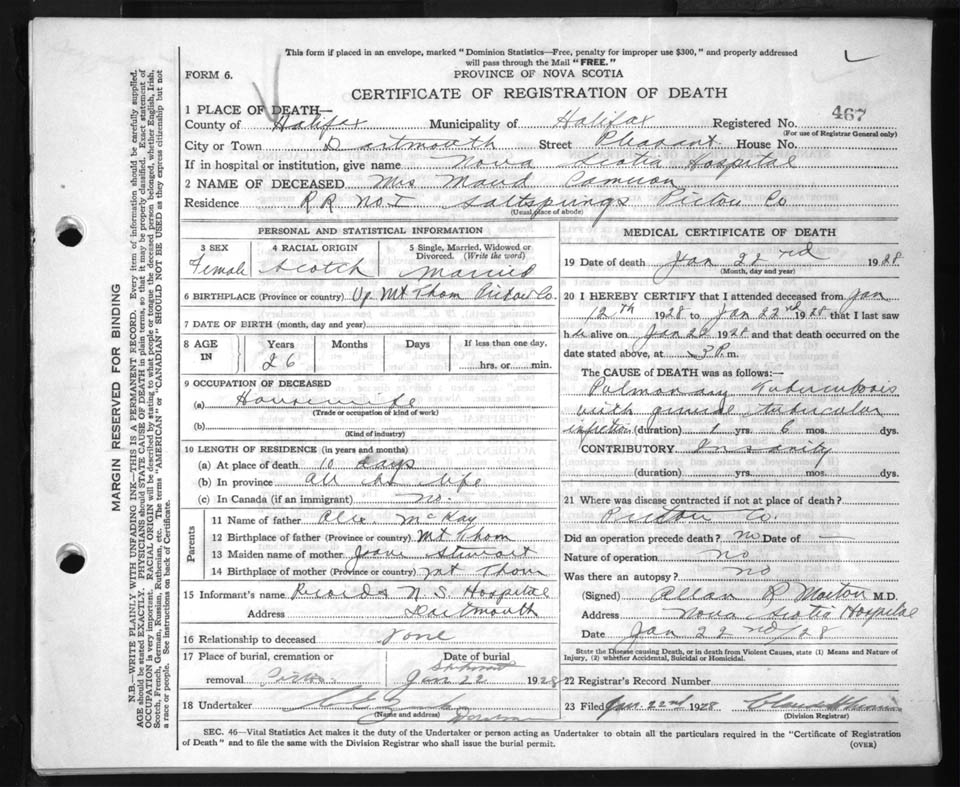 This form if placed in an envelope, marked "Dominion Statistics—Free, penalty for improper use $300," and properly addressed
will pass through the Mail "FREE."
FORM 6.
PROVINCE OF NOVA SCOTIA
CERTIFICATE OF REGISTRATION OF DEATH
1 PLACE OF DEATH—
County of Halifax Municipality of Halifax Registered No. 467
(For use of Registrar General only)
City or Town Dartmouth Street Pleasant House No.
If in hospital or institution, give name Nova Scotia Hospital
2 NAME OF DECEASED Mrs Maud Cameron
Residence RR No I Saltsprings Pictou Co
(Usual place of abode)
PERSONAL AND STATISTICAL INFORMATION
3 SEX 4 RACIAL ORIGIN 5 Single, Married, Widowed or Divorced. (Write the word)
Female Scotch Married
6 BIRTHPLACE (Province or country) Up. Mt Thom Pictou Co.
7 DATE OF BIRTH (month, day and year)
8 AGE IN Years Months Days If less than one day,
26 hrs. or min.
9 OCCUPATION OF DECEASED
(a) Housewife
(Trade or occupation or kind of work)
(b)
(Kind of industry)
10 LENGTH OF RESIDENCE (in years and months)
(a) At place of death 10 days
(b) In province all her life
(c) In Canada (if an immigrant) no.
Parents
11 Name of father Alex. McKay
12 Birthplace of father (Province or country) Mt Thom
13 Maiden name of mother Stewart
14 Birthplace of mother (Province or country) Mt Thom
15 Informant's name Records N. S. Hospital
Address Dartmouth
16 Relationship to deceased none
17 Place of burial, cremation or Date of burial
removal Pictou Jan 22 1928
18 Undertaker
(Name and address)
MEDICAL CERTIFICATE OF DEATH
19 Date of death Jan 22nd 1928
(Month, day and year)
20 I HEREBY CERTIFY that I attended deceased from Jan
12th 1928 to Jan 22nd 1928 that I last saw
her alive on Jan 22 1928 and that death occurred on the
date stated above, at 3 P. m.
The CAUSE of DEATH was as follows:—
Pulmonary Tuberculosis
with general tubercular
infection (duration) 1 yrs. 6 mos. dys.
CONTRIBUTORY Insanity
(duration) yrs. mos. dys.
21 Where was disease contracted if not at place of death?
Pictou Co.
Did an operation precede death? no Date of —
Nature of operation no
Was there an autopsy? no
(Signed) Allan R Morton M.D.
Address Nova Scotia Hospital
Date Jan 22nd/28
State the Disease causing Death, or in death from Violent Causes, state (1) Means and Nature of
Injury, (2) whether Accidental, Suicidal or Homicidal.
22 Registrar's Record Number
23 Filed Jan. 22nd 1928
(Division Registrar)
SEC. 46—Vital Statistics Act makes it the duty of the Undertaker or person acting as Undertaker to obtain all the particulars required in the "Certificate of Registration
of Death" and to file the same with the Division Registrar who shall issue the burial permit.
(OVER)
MARGIN RESERVED FOR BINDING
N.B.—WRITE PLAINLY WITH UNFADING INK—THIS IS A PERMANENT RECORD. Every item of information should be carefully supplied.
AGE should be stated EXACTLY. PHYSICIANS should STATE CAUSE OF DEATH in plain terms, so that it may be properly classified. Exact statement of
OCCUPATION is very important. RACIAL ORIGIN will be described by stating to what people or tongue the deceased person belonged, whether English, Irish,
Scotch, French, German, Russian, Ruthenian, etc. The terms "AMERICAN" or "CANADIAN" SHOULD NOT BE USED as they express citizenship but not
a race or people. See instructions on back of Certificate.